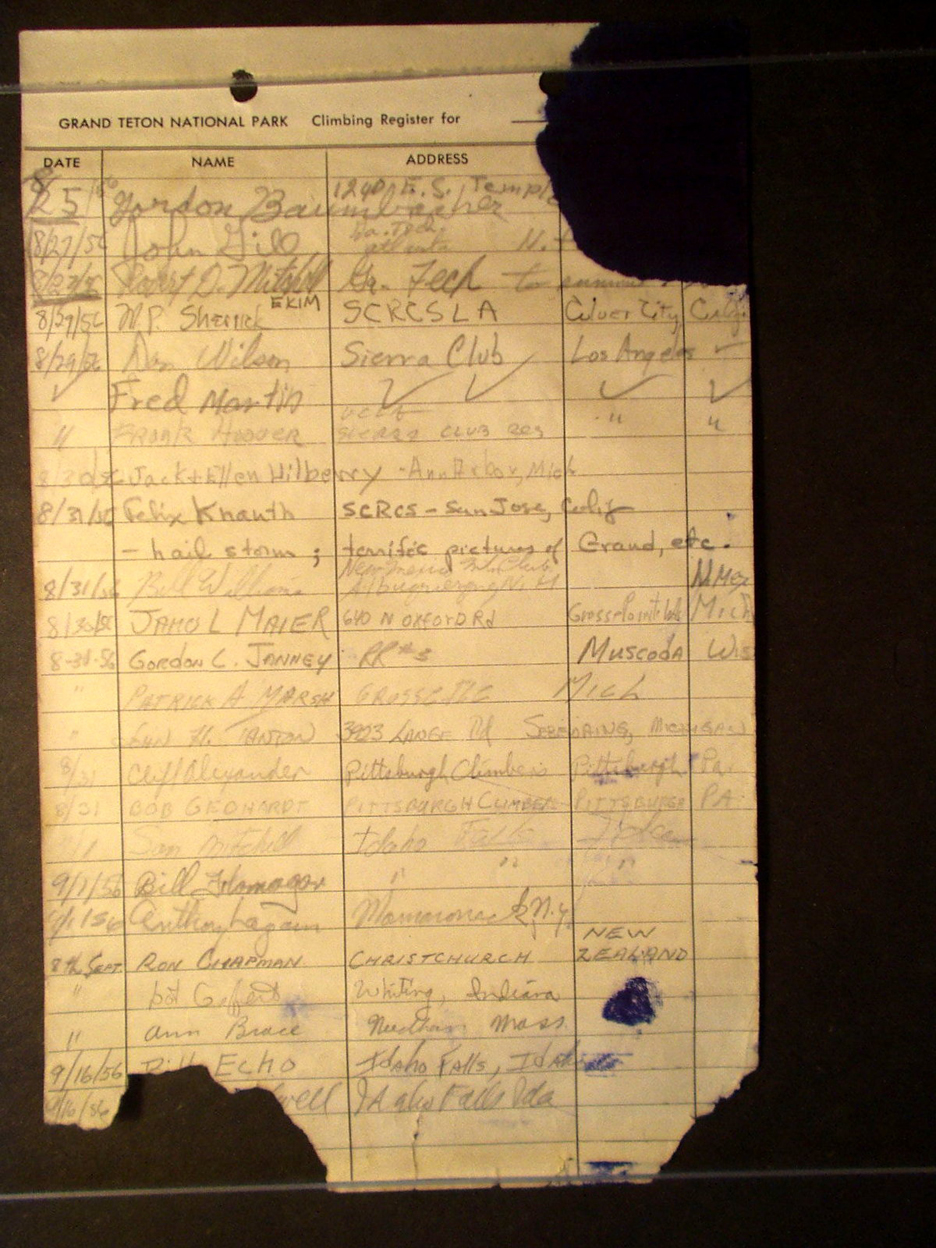 GRAND TETON NATIONAL PARK Climbing Register for
DATE NAME ADDRESS
8/25/56 Gordon 1240 E. S. Temple
8/27/56 John Gill Ga. Tech Atlanta
8/27/56 Robert D. Mitchell Ga. Tech to summit
EKIM
8/29/56 W.P. Sherrick SCRCSLA Culver City, Calif
8/29/56 Don Wilson Sierra Club Los Angeles ✓
✓ Fred Martin ✓ ✓ ✓ ✓
UCLA
" FRANK HOOVER SIERRA CLUB RCS " "
8/30/56 Jack + Ellen Hilberry - Ann Arbor, Mich
8/31/56 Felix Knauth SCRCS - San Jose, Calif
- hail storm ; terrific pictures of Grand, etc.
New Mexico Mt. Club
8/31/56 Bill Williams Albuquerque N. M N. Mex
8/30/56 L MAIER 640 N OXFORD Rd Grosse Pointe Wds Mich
8-31-56 GORDON C. JANNEY RR #3 MUSCODA Wis
" PATRICK A MARSH GROSSE ILE Mich
" H. TANTON 3923 LANGE Rd SEBEWAING, MICHIGAN
8/31 Cliff Alexander Pittsburgh Climbers Pittsburgh Pa.
8/31 BOB GEBHARDT PITTSBURGH CLIMBERS PITTSBURGH PA
Sam Mitchell Idaho Falls Idaho
9/1/56 Bill " " "
9/1/56 Anthony N.Y.
NEW
8th Sept. RON CHAPMAN CHRISTCHURCH ZEALAND
" Whiting, Indiana
" Ann Brace Needham Mass.
9/16/56 Bill ECHO Idaho Falls, Idaho
9/16/56 well Idaho Falls Ida